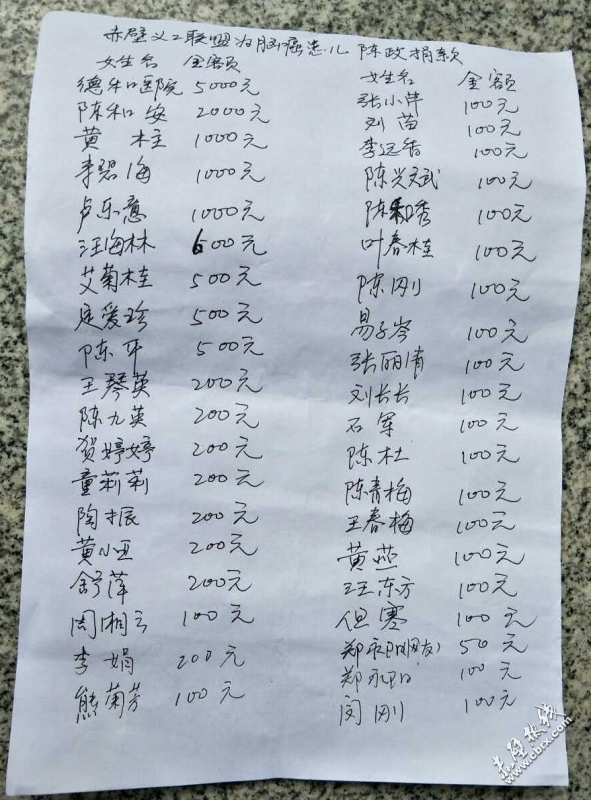 赤壁义工联盟为脑瘤患儿陈政捐款
女生名 金额
德和医院 5000元
陈和安 2000元
黄柱 1000元
李碧海 1000元
卢乐意 1000元
汪海林 600元
艾菊桂 500元
爱珍 500元
陈平 500元
王琴英 200元
陈九英 200元
贺婷婷 200元
童莉莉 200元
陶振 200元
黄小亚 200元
舒萍 200元
周湘云 100元
李娟 200元
熊菊芳 100元
女生名 金额
张小萍 100元
刘苗 100元
李远香 100元
陈兴斌 100元
陈和秀 100元
叶春桂 100元
陈刚 100元
易子岑 100元
张丽倩 100元
刘长长 100元
石军 100元
陈杜 100元
陈青梅 100元
王春梅 100元
黄燕 100元
汪东方 100元
但寒 100元
郑永阳(朋友) 50元
郑永阳 100元
闵刚 100元
赤壁热线
www.cbrx.com